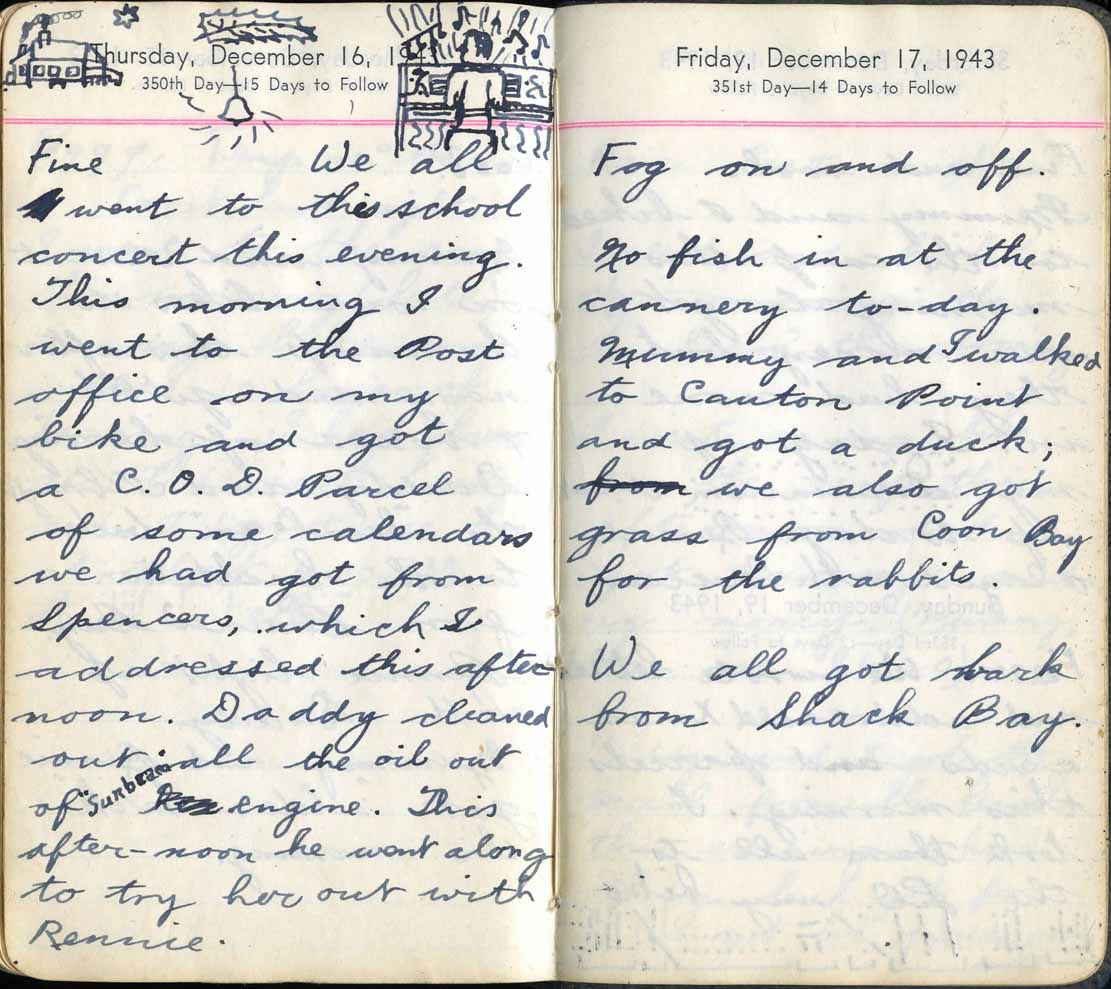 Thursday, December 16, 19
350th Day—15 Days to Follow
Fine We all
went to this school
concert this evening.
This morning I
went to the Post
office on my
bike and got
a C. O. D. Parcel
of some calendars
we had got from
Spencers, which I
addressed this after-
noon. Daddy cleaned
out all the oil out
of "Sunbeam engine. This
after-noon he went along
to try her out with
Rennie.
Friday, December 17, 1943
351st Day—14 Days to Follow
Fog on and off.
No fish in at the
cannery to-day.
Mummy and I walked
to Canton Point
and got a duck;
from we also got
grass from Coon Bay
for the rabbits.
We all got bark
from Shack Bay.